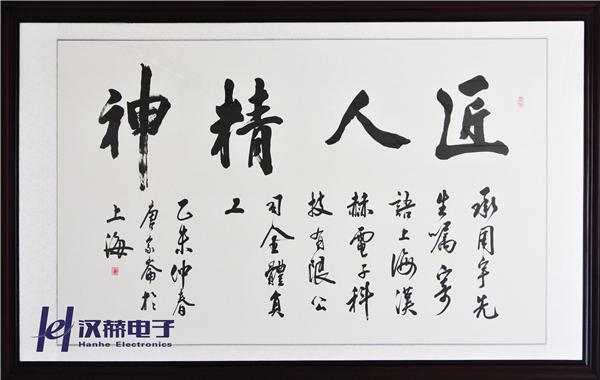 匠人精神
承周宇先
生嘱寄
語上海漢
赫電子科
技有限公
司全體員
工
乙未仲春
於
上海
汉赫电子
Hanhe Electronics